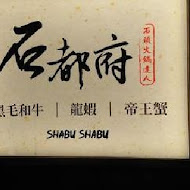 石都府
石頭火鍋達人
黑毛和牛｜龍蝦｜帝王蟹
SHABU SHABU